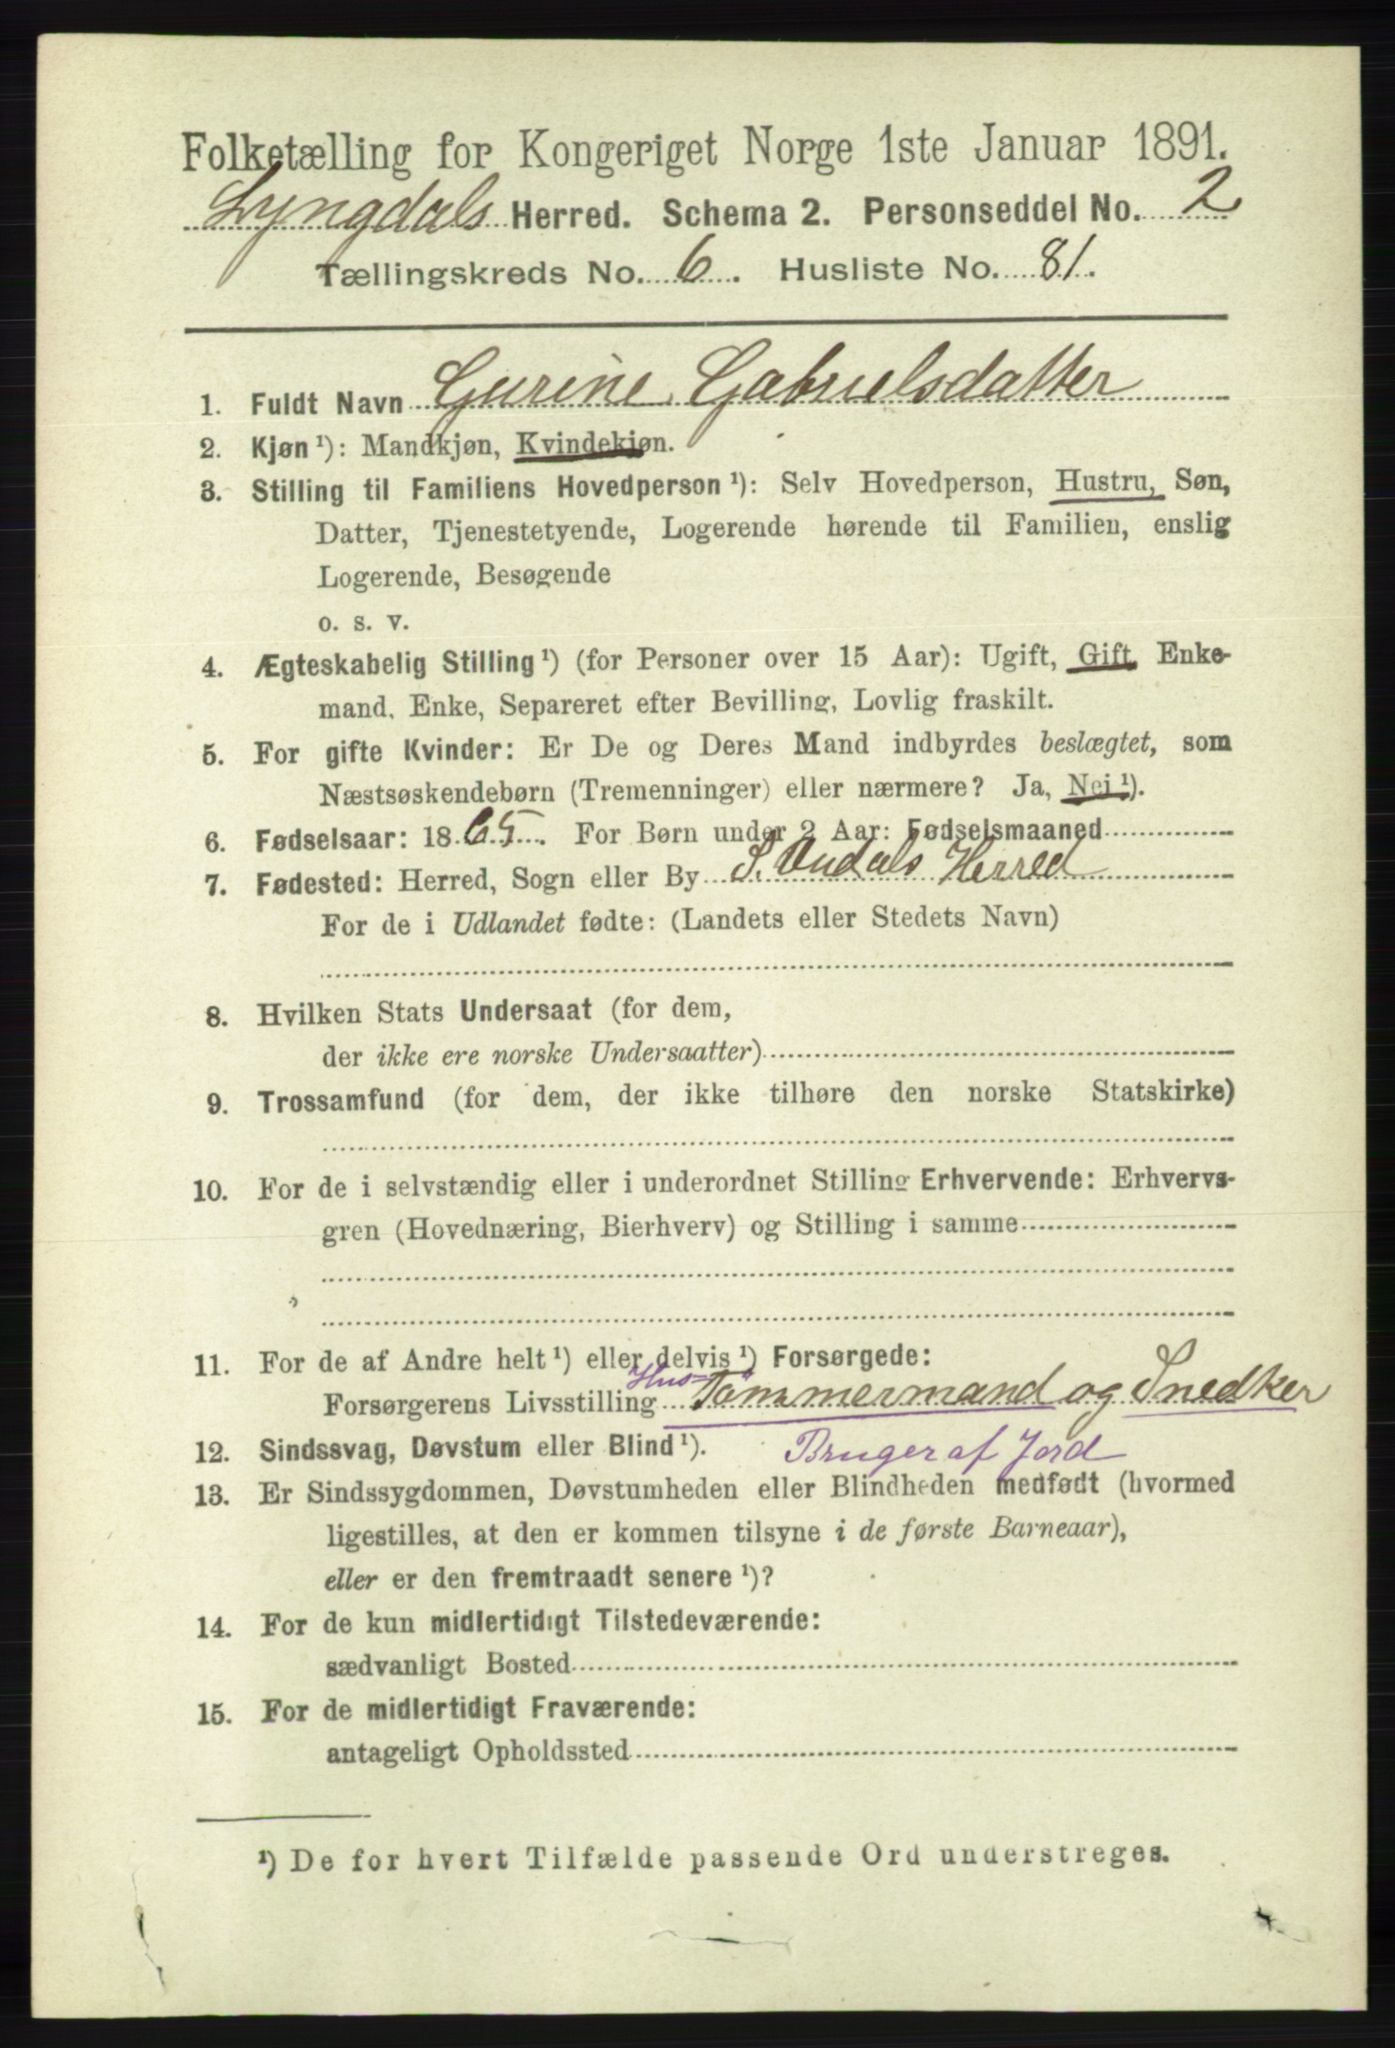 Folketælling for Kongeriget Norge 1ste Januar 1891.
Lyngdals Herred. Schema 2. Personseddel No. 2
Tællingskreds No. 6. Husliste No. 81.
1. Fuldt Navn Gurine Gabrielsdatter
2. Kjøn ¹): Mandkjøn, Kvindekjøn.
3. Stilling til Familiens Hovedperson ¹): Selv Hovedperson, Hustru, Søn,
Datter, Tjenestetyende, Logerende hørende til Familien, enslig
Logerende, Besøgende
o. s. v.
4. Ægteskabelig Stilling ¹) (for Personer over 15 Aar): Ugift, Gift, Enke-
mand, Enke, Separeret efter Bevilling, Lovlig fraskilt.
5. For gifte Kvinder: Er De og Deres Mand indbyrdes beslægtet, som
Næstsøskendebørn (Tremenninger) eller nærmere? Ja, Nei ¹).
6. Fødselsaar: 1865. For Børn under 2 Aar: Fødselsmaaned
7. Fødested: Herred, Sogn eller By S. Undals Herred
For de i Udlandet fødte: (Landets eller Stedets Navn)
8. Hvilken Stats Undersaat (for dem,
der ikke ere norske Undersaatter)
9. Trossamfund (for dem, der ikke tilhøre den norske Statskirke)
10. For de i selvstændig eller i underordnet Stilling Erhvervende: Erhvervs-
gren (Hovednæring, Bierhverv) og Stilling i samme
11. For de af Andre helt ¹) eller delvis ¹) Forsørgede:
Forsørgerens Livsstilling Hus=Tømmermand og Snedker
12. Sindssvag, Døvstum eller Blind ¹). Bruger af Jord
13. Er Sindssygdommen, Døvstumheden eller Blindheden medfødt (hvormed
ligestilles, at den er kommen tilsyne i de første Barneaar),
eller er den fremtraadt senere ¹)?
14. For de kun midlertidigt Tilstedeværende:
sædvanligt Bosted
15. For de midlertidigt Fraværende:
antageligt Opholdssted
¹) De for hvert Tilfælde passende Ord understreges.